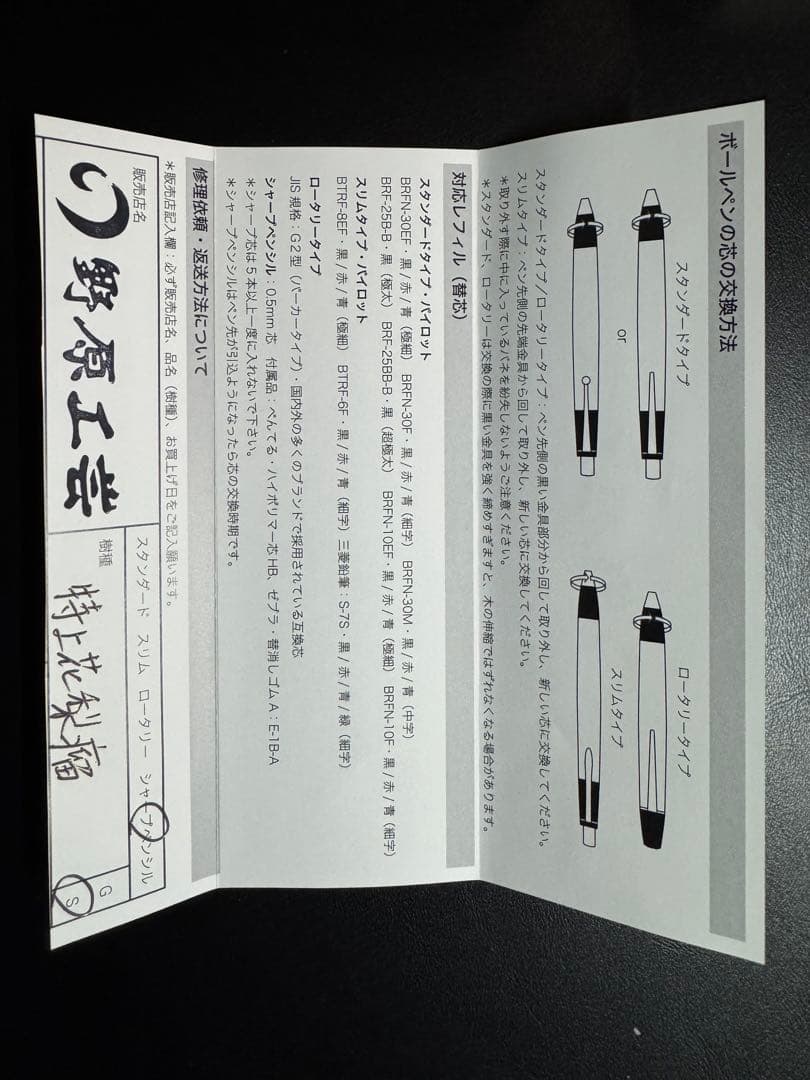 ボールペンの芯の交換方法
スタンダードタイプ
or
ロータリータイプ
スリムタイプ
スタンダードタイプ/ロータリータイプ：ペン先側の黒い金具部分から回して取り外し、新しい芯に交換してください。
スリムタイプ：ペン先側の先端金具から回して取り外し、新しい芯に交換してください。
＊取り外す際に中に入っているバネを紛失しないようご注意ください。
＊スタンダード、ロータリーは交換の際に黒い金具を強く締めすぎますと、木の伸縮ではずれなくなる場合があります。
対応レフィル（替芯）
スタンダードタイプ・パイロット
BRFN-30EF・黒/赤/青（極細） BRFN-30F・黒/赤/青（細字） BRFN-30M・黒/赤/青（中字）
BRF-25B-B：黒（極太） BRF-25BB-B・黒（超極太） BRFN-10EF・黒/赤/青（極細） BRFN-10F・黒/赤/青（細字）
スリムタイプ・パイロット
BTRF-8EF・黒/赤/青（極細） BTRF-6F・黒/赤/青（細字）三菱鉛筆：S-7S・黒/赤/青/緑（細字）
ロータリータイプ
JIS 規格：G2 型（パーカータイプ）・国内外の多くのブランドで採用されている互換芯
シャープペンシル：0.5mm 芯 付属品：ぺんてる・ハイポリマー芯 HB、ゼブラ・替消しゴム A：E-1B-A
＊シャープ芯は 5 本以上一度に入れないで下さい。
＊シャープペンシルはペン先が引込ようになったら芯の交換時期です。
修理依頼・返送方法について
＊販売店記入欄：必ず販売店名、品名（樹種）、お買上げ日をご記入願います。
販売店名
野原工芸
スタンダード スリム ロータリー シャープペンシル
G
S
樹種
特上花梨瘤